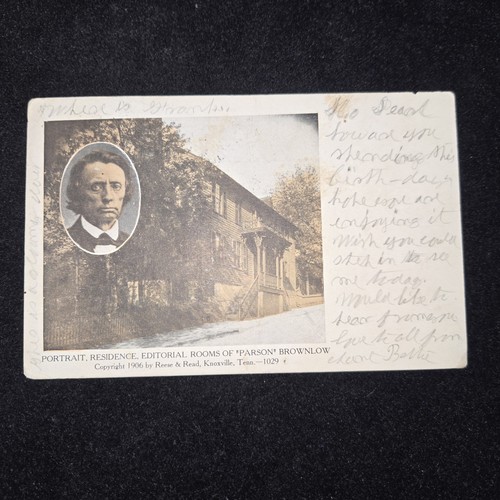 Where is
PORTRAIT, RESIDENCE, EDITORIAL ROOMS OF "PARSON" BROWNLOW
Copyright 1906 by Reese & Read, Knoxville, Tenn.—1029
Dear
how are you
spending this
birth-day
hope you are
enjoying it
Wish you could
step in to see
me today.
Would like to
hear from you
love to all from
Aunt